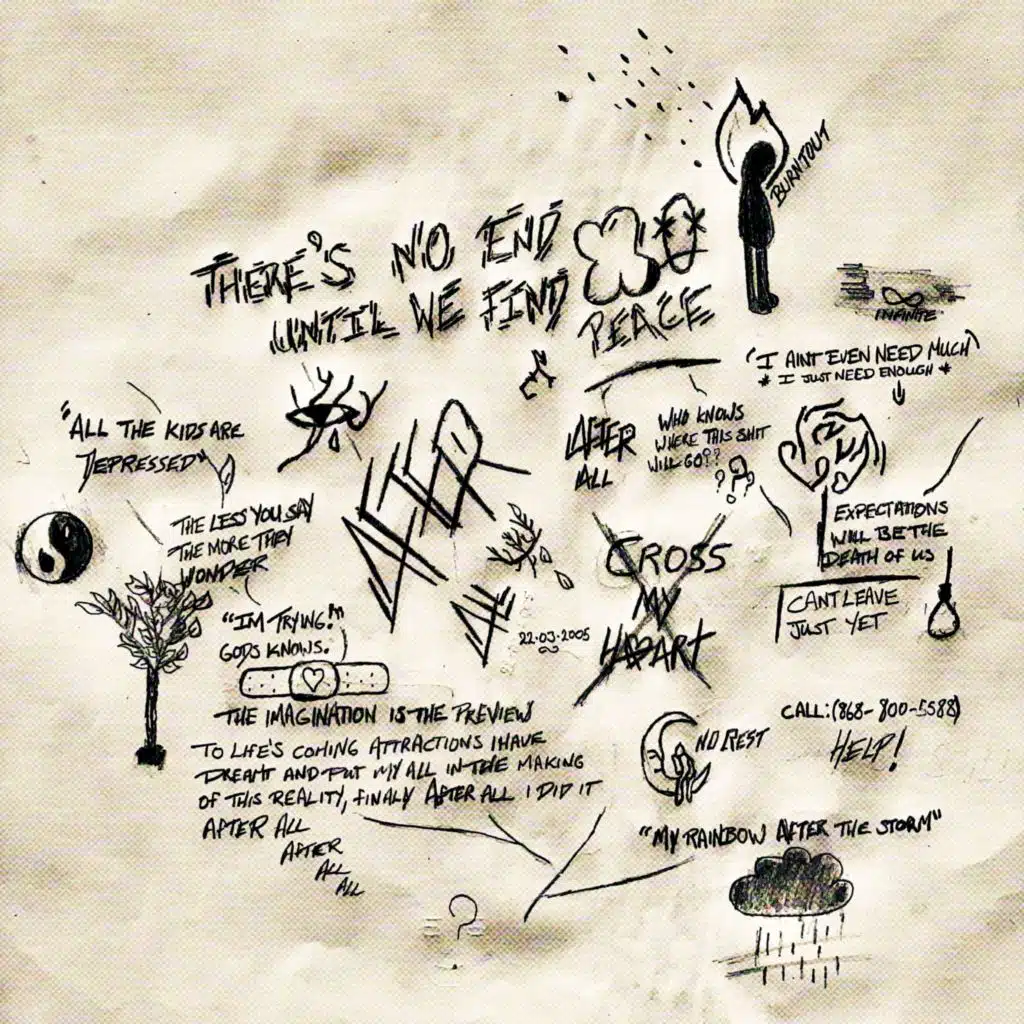 BURNTOUT
THERE'S NO END
UNTIL WE FIND
PEACE
INFINITE
"I AINT EVEN NEED MUCH"
* I JUST NEED ENOUGH *
"ALL THE KIDS ARE
DEPRESSED"
AFTER
ALL
WHO KNOWS
WHERE THIS SHIT
WILL GO??
???
AFTER
ALL
THE LESS YOU SAY
THE MORE THEY
WONDER
EXPECTATIONS
WILL BE THE
DEATH OF US
CROSS
MY
HEART
CANT LEAVE
JUST YET
"IM TRYING!"
GODS KNOWS.
22.03.2005
THE IMAGINATION IS THE PREVIEW
TO LIFE'S COMING ATTRACTIONS I HAVE
DREAMT AND PUT MY ALL IN THE MAKING
OF THIS REALITY, FINALY AFTER ALL I DID IT
AFTER ALL
AFTER
ALL
ALL
NO REST
CALL:(868-800-5588)
HELP!
"MY RAINBOW AFTER THE STORM"
?